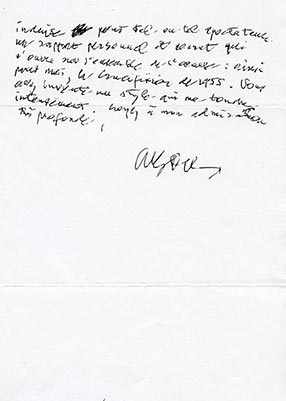 pour tel ou tel spectateur
un rapport personnel et secret qui
s'ouvre sur l'ensemble de l'œuvre : ainsi
pour moi, la Crucifixion de 1955. Vous
avez inventé un style qui me touche
intensément, croyez à mon admiration
très profonde,